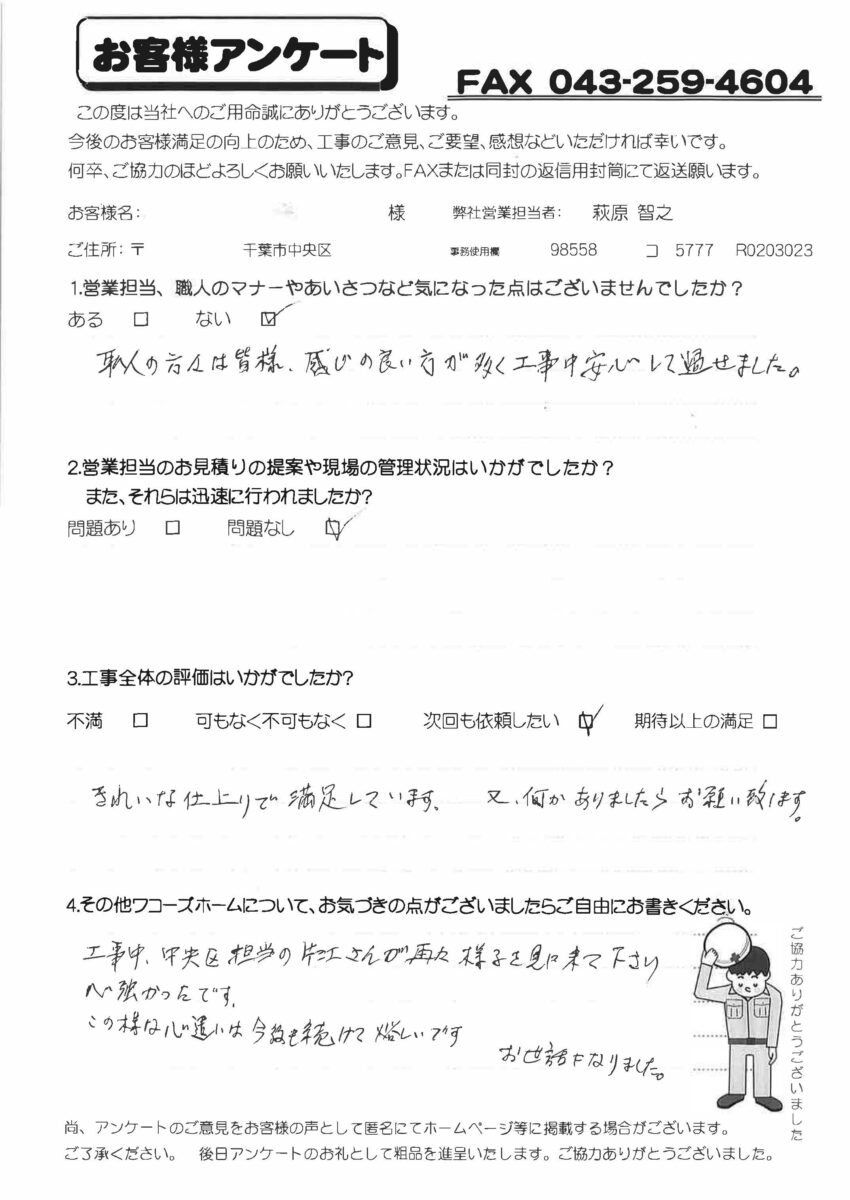 お客様アンケート
FAX 043-259-4604
この度は当社へのご用命誠にありがとうございます。
今後のお客様満足の向上のため、工事のご意見、ご要望、感想などいただければ幸いです。
何卒、ご協力のほどよろしくお願いいたします。FAXまたは同封の返信用封筒にて返送願います。
お客様名: 様 弊社営業担当者: 萩原 智之
ご住所: 〒 千葉市中央区 事務使用欄 98558 コ 5777 R0203023
1.営業担当、職人のマナーやあいさつなど気になった点はございませんでしたか?
ある □ ない ☑
職人の方々は皆様、感じの良い方が多く工事中安心して過せました。
2.営業担当のお見積りの提案や現場の管理状況はいかがでしたか?
また、それらは迅速に行われましたか?
問題あり □ 問題なし ☑
3.工事全体の評価はいかがでしたか?
不満 □ 可もなく不可もなく □ 次回も依頼したい ☑ 期待以上の満足 □
きれいな仕上りで満足しています。 又、何かありましたらお願い致します。
4.その他ワコーズホームについて、お気づきの点がございましたらご自由にお書きください。
工事中、中央区担当の さんが再々様子を見に来て下さり
心強かったです。
この様な心遣いは今後も続けて嬉しいです
お世話になりました。
ご協力ありがとうございました
尚、アンケートのご意見をお客様の声として匿名にてホームページ等に掲載する場合がございます。
ご了承ください。 後日アンケートのお礼として粗品を進呈いたします。ご協力ありがとうございました。